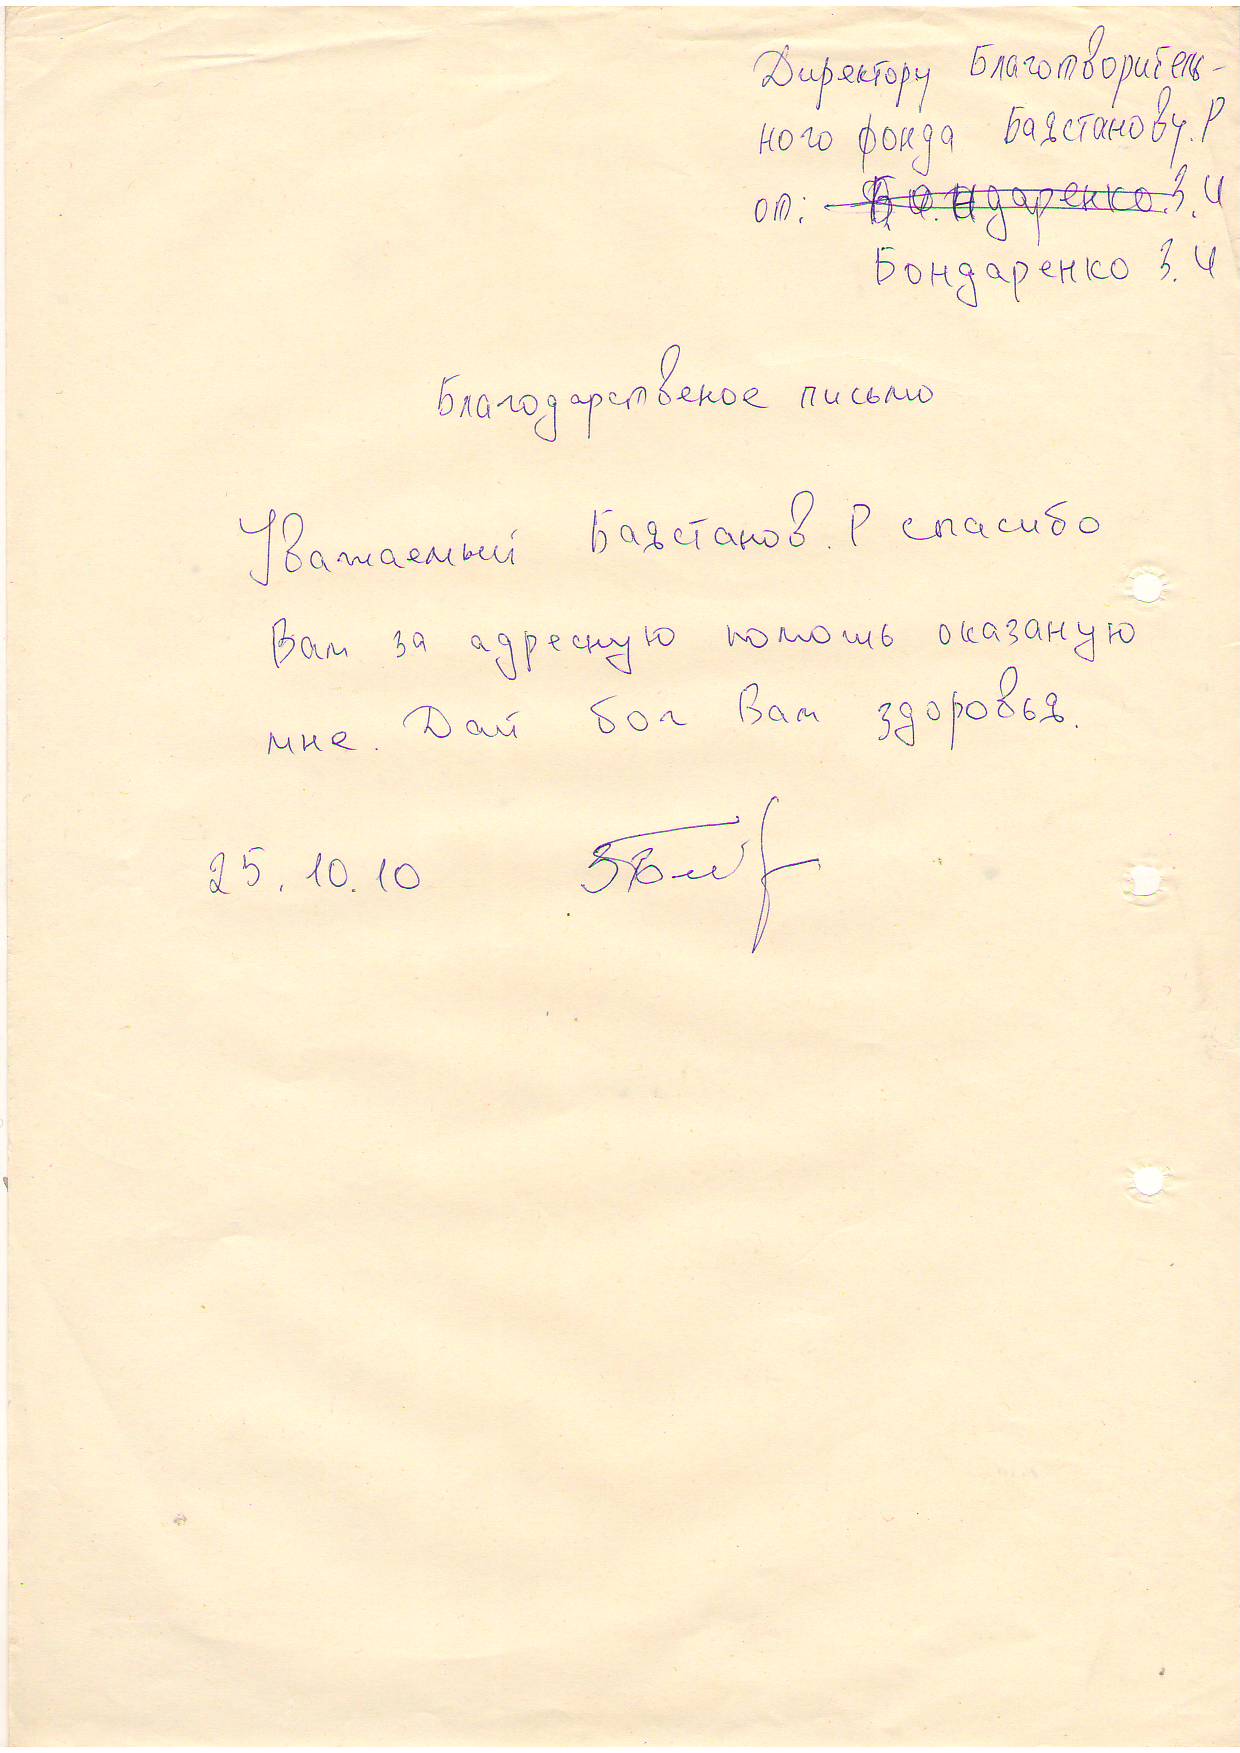 Директору Благотворитель-
ного фонда Баястанову. Р
от: Бондаренко З.И
Бондаренко З.И
Благодарственое письмо
Уважаемый Баястанов. Р спасибо
Вам за адресную помошь оказаную
мне. Дай бог Вам здоровья.
25.10.10